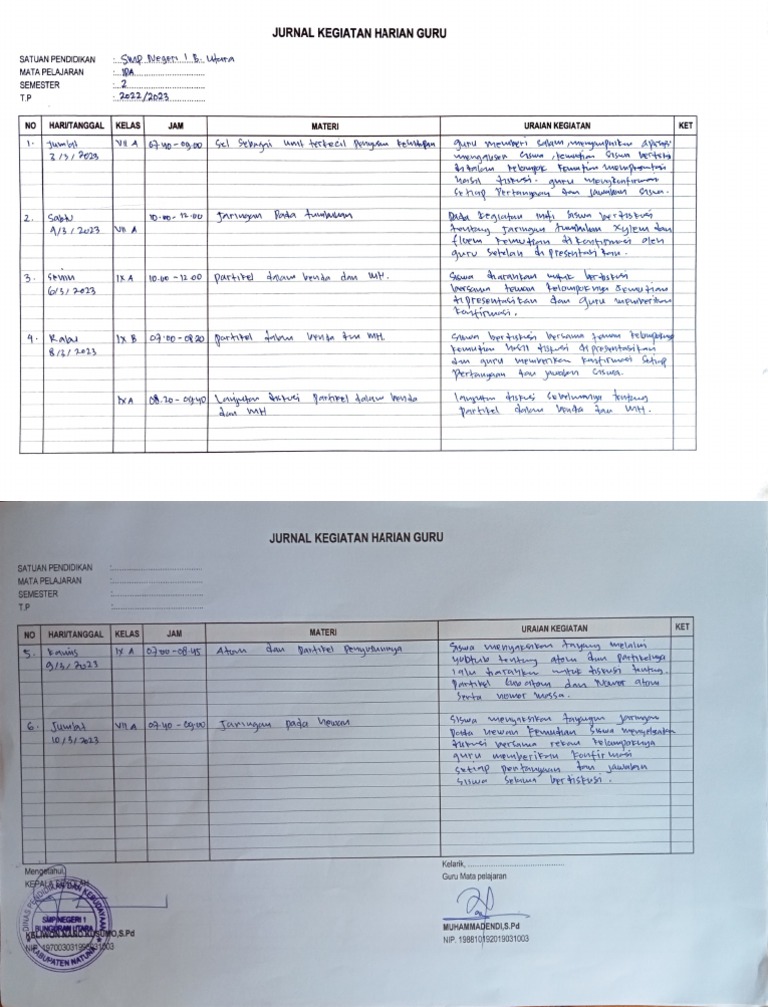 JURNAL KEGIATAN HARIAN GURU
SATUAN PENDIDIKAN : SMP Negeri 1 B. Utara
MATA PELAJARAN : IPA
SEMESTER : 2
T.P : 2022/2023
NO HARI/TANGGAL KELAS JAM MATERI URAIAN KEGIATAN KET
1. Jumbat VII A 07.40 - 09.00 Sel sebagai unit terkecil penyusun kehidupan guru memberi salam menyampaikan apersepsi
3/3/2023 mengabsen siswa kemudian siswa berdiskusi
didalam kelompok kemudian mempresentasi
hasil diskusi. guru mengkonfirmasi
setiap pertanyaan dan jawaban siswa.
2. Sabtu VII A 10.00 - 12.00 Jaringan Pada tumbuhan Pada kegiatan inti siswa berdiskusi
4/3/2023 tentang jaringan tumbuhan xylem dan
floem kemudian di konfirmasi oleh
guru setelah di presentasikan.
3. Senin IX A 10.00 - 12.00 partikel dalam benda dan MH. Siswa diarahkan untuk berdiskusi
6/3/2023 bersama teman kelompoknya kemudian
dipresentasikan dan guru memberikan
konfirmasi.
4. Rabu IX B 07.00 - 08.20 partikel dalam benda dan MH siswa berdiskusi bersama teman kelompoknya
8/3/2023 kemudian hasil diskusi di presentasikan
dan guru memberikan konfirmasi setiap
pertanyaan dan jawaban siswa.
IX A 08.20 - 09.40 Lanjutan diskusi partikel dalam benda lanjutan diskusi sebelumnya tentang
dan MH partikel dalam benda dan MH.
JURNAL KEGIATAN HARIAN GURU
SATUAN PENDIDIKAN :
MATA PELAJARAN :
SEMESTER :
T.P :
NO HARI/TANGGAL KELAS JAM MATERI URAIAN KEGIATAN KET
5. Kamis IX A 07.00 - 08.45 Atom dan partikel Penyusunnya Siswa menyaksikan tayang melalui
9/3/2023 youtub tentang atom dan partikelnya
lalu diarahkan untuk diskusi tentang
partikel sub atom dan nomor atom
serta nomor massa.
6. Jumbat VII A 07.40 - 09.00 Jaringan pada hewan Siswa menyaksikan tayangan jaringan
10/3/2023 pada hewan kemudian siswa menyelesaikan
diskusi bersama rekan kelompoknya
guru memberikan konfirmasi
setiap pertanyaan dan jawaban
siswa selama berdiskusi.
Mengetahui,
KEPALA
Kelarik,
Guru Mata pelajaran
DINAS PENDIDIKAN DAN KEBUDAYAAN
SMP NEGERI 1
BUNGURAN UTARA
KABUPATEN NATUNA
S.Pd
NIP.
MUHAMMADENDI,S.Pd
NIP. 198810192019031003